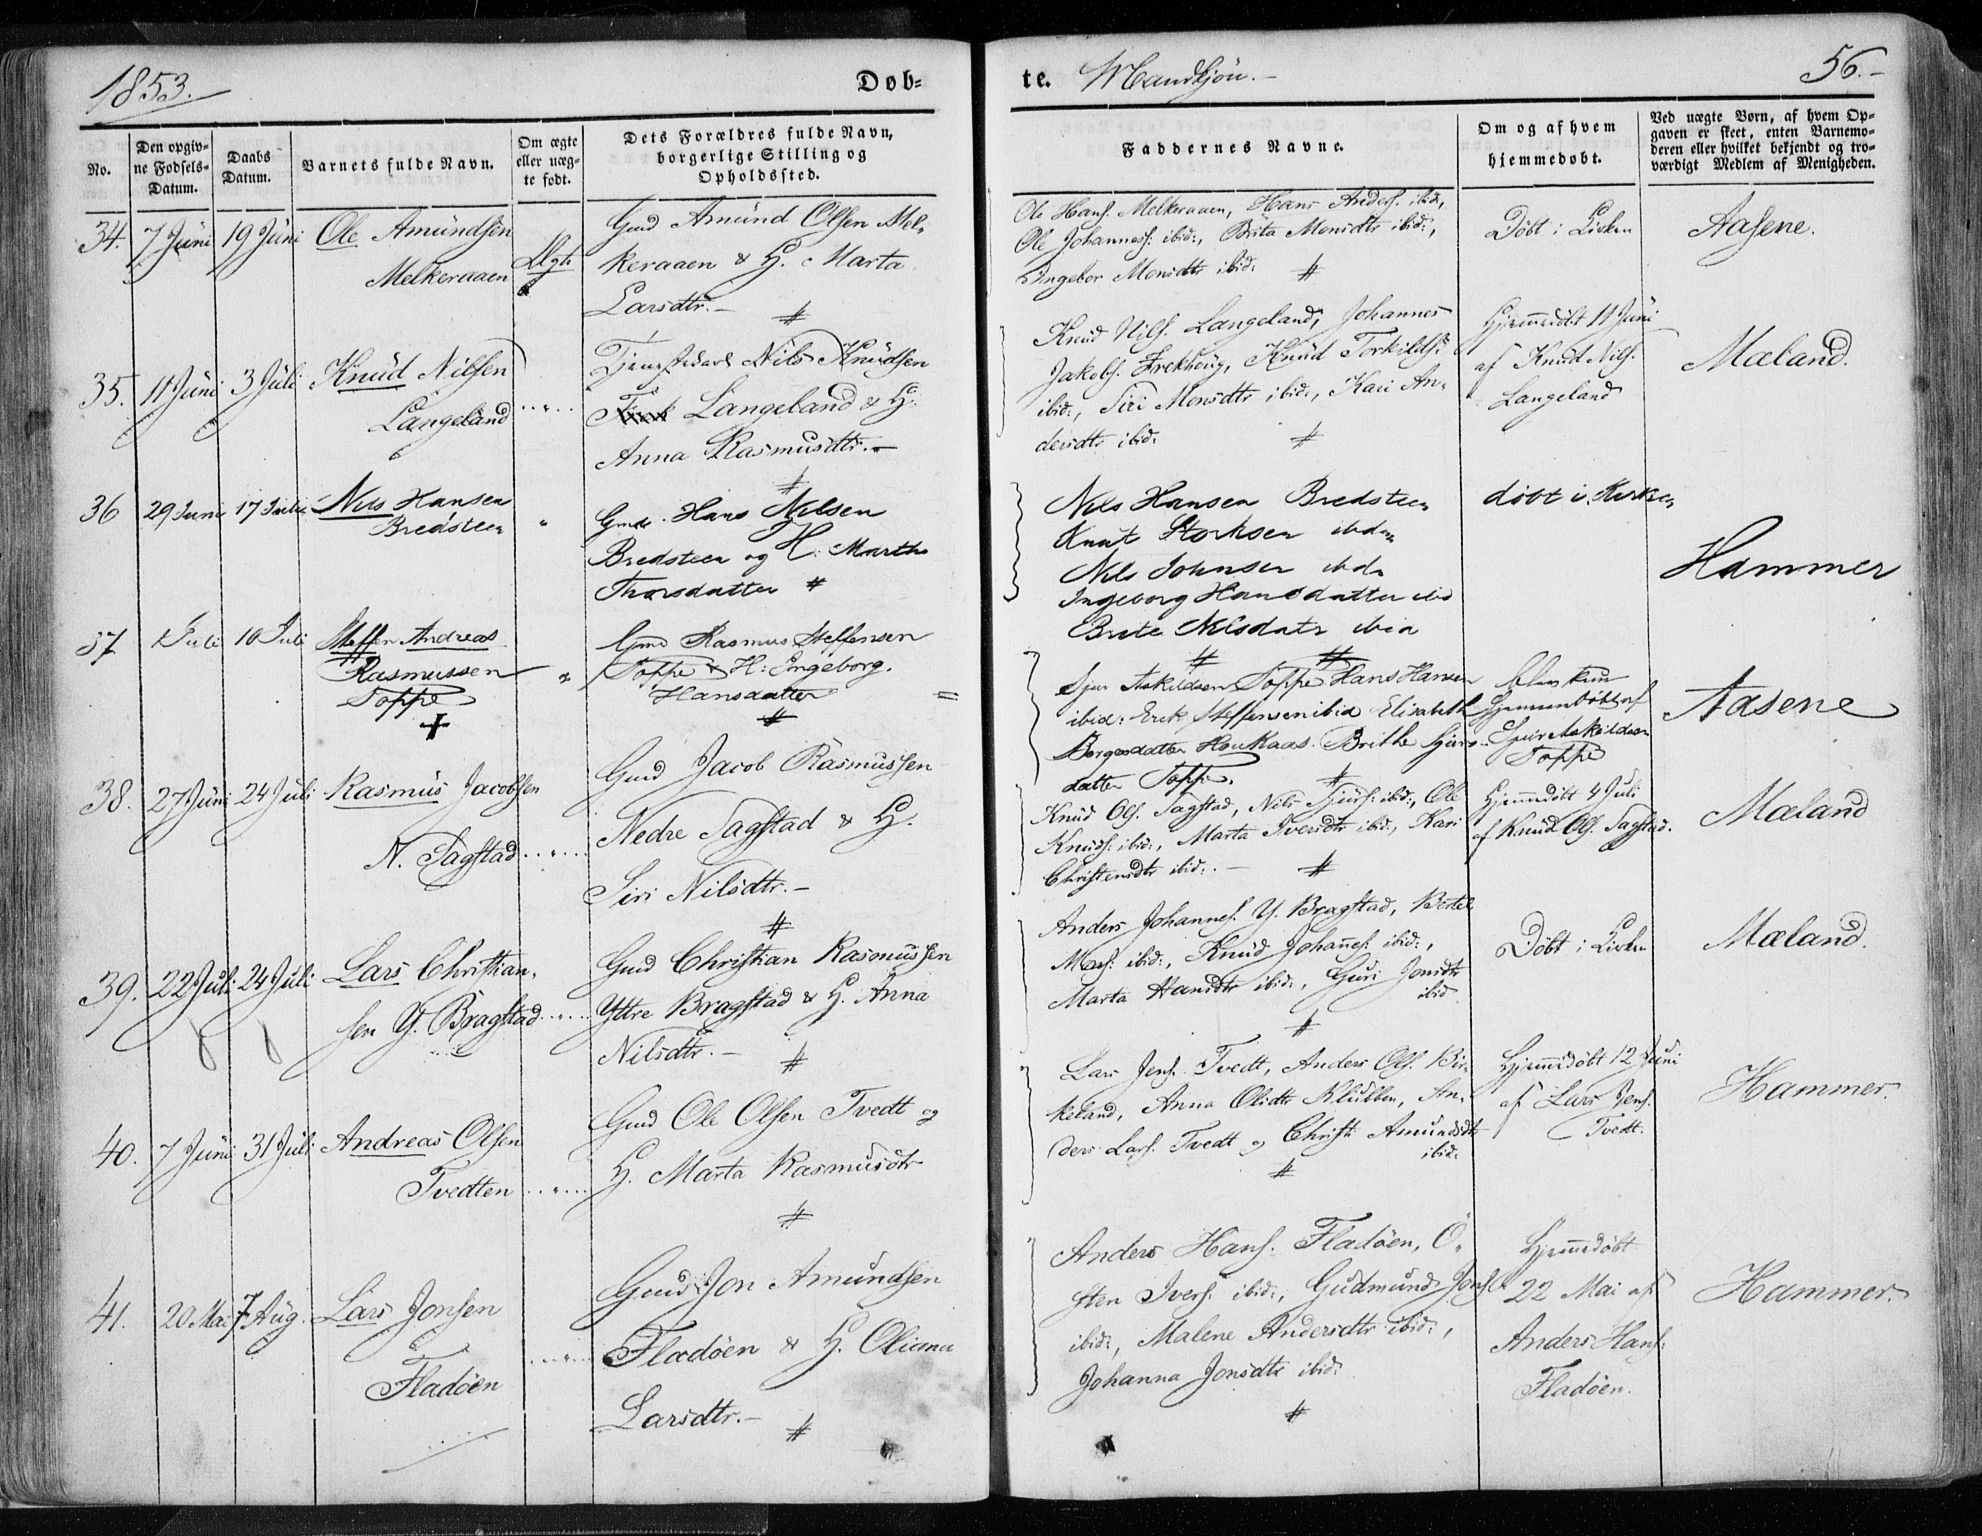 1853.
Døb=
te. Mandkjøn.-
56.-
No.
Den opgiv=
ne Fødsels=
Datum.
Daabs
Datum.
Barnets fulde Navn.
Om ægte
eller uæg=
te født.
Dets Forældres fulde Navn,
borgerlige Stilling og
Opholdssted.
Faddernes Navne.
Om og af hvem
hjemmedøbt.
Ved uægte Børn, af hvem Op=
gaven er skeet, enten Barnemo=
deren eller hvilket bekjendt og tro=
værdigt Medlem af Menigheden.
34. 7 Juni 19 Juni Ole Amundsen
Melkeraaen
Ægt.
Gmd Amund Olsen Mel,
keraaen & H. Marta
Larsdtr.-
#
Ole Hans. Melkeraaen, Hans Anders. ibid,
Ole Johannes. ibid:, Brita Monsdtr ibid:,
Ingebor Monsdtr ibid: #
Døbt i Kirken
Aasene.
35. 11 Juni 3 Juli Knud Nilsen
Langeland
..„..
Tjenestekarl Nils Knudsen
Langeland & H.
Anna Rasmusdtr.-
#
Knud Nils. Langeland, Johannes
Jakobs. Erekhoug, Knud Torkilds.
ibid:, Siri Monsdtr ibid:, Kari An,
dersdtr ibid: #
Hjemmedøbt 11 Juni
af Knud Nils.
Langeland
Mæland.
36 29 Juni 17 Juli Nils Hansen
Bredsteen
„
Gmd. Hans Nilsen
Bredsteen og H: Marthe
Thorsdatter #
Nils Hansen Bredsteen
Knut Storksen ibden
Nils Johnsen ibde
Ingeborg Hansdatter ibid
Brite Nilsdatr ibid
#
døbt i Kirken
Hammer
37 1 Juli 10 Juli Steffen Andreas
Rasmussen
Toppe
+
„
Gmd Rasmus Steffensen
Toppe & H: Ingeborg.
Hansdatter =
#
Sjur Askildsen Toppe Hans Hansen
ibid: Erik Steffensen ibid Elisabeth
Børgesdatter Haukaas. Brithe Sjurs-
datter Toppe. #
Hjemmedøbt af
Sjur Askildsen
Toppe
Aasene
38. 27 Juni 24 Juli Rasmus Jacobsen
N. Tagstad
..„..
Gmd Jacob Rasmussen
Nedre Tagstad & H.
Siri Nilsdtr.-
#
Knud Ols. Tagstad, Nils Sjurs. ibid:, Ole
Knuds. ibid:, Marta Iversdtr ibid:, Kari
Christensdtr ibid:.- #
Hjemmedøbt 4 Juli
af Knud Ols. Tagstad.
Mæland
39. 22 Juli 24 Juli Lars Christian,
sen Y. Bragstad
..„..
Gmd Christian Rasmussen
Yttre Bragstad & H. Anna
Nilsdtr.- #
Anders Johannes. Y. Bragstad, Bertel
Mons. ibid:, Knud Johannes. ibid:,
Marta Hansdtr ibid:, Guri Jonsdtr
ibid
#
Døbt i Kirken
Mæland.
40. 7 Juni 31 Juli Andreas Olsen
Tvedten
..„..
Gmd Ole Olsen Tvedt og
H. Marta Rasmusdtr
#
Lars Jens. Tvedt, Anders Ols. Bir,
keland, Anna Olsdtr Klubben, An,
ders Lars. Tvedt og Christi Amundsdtr
ibid:
#
Hjemmedøbt 12 Juni
af Lars Jens.
Tvedt.
Hammer.
41. 20 Mai 7 Aug. Lars Jonsen
Fladøen
..„..
Gmd Jon Amundsen
Fladøen & H. Oliana
Larsdtr.- #
Anders Hans. Fladøen, Ø,
sten Ivers. ibid:, Gudmund Jons.
ibid:, Malene Andersdtr ibid:,
Johanna Jonsdtr ibid:
#
Hjemmedøbt
22 Mai af
Anders Hans.
Fladøen.
Hammer.